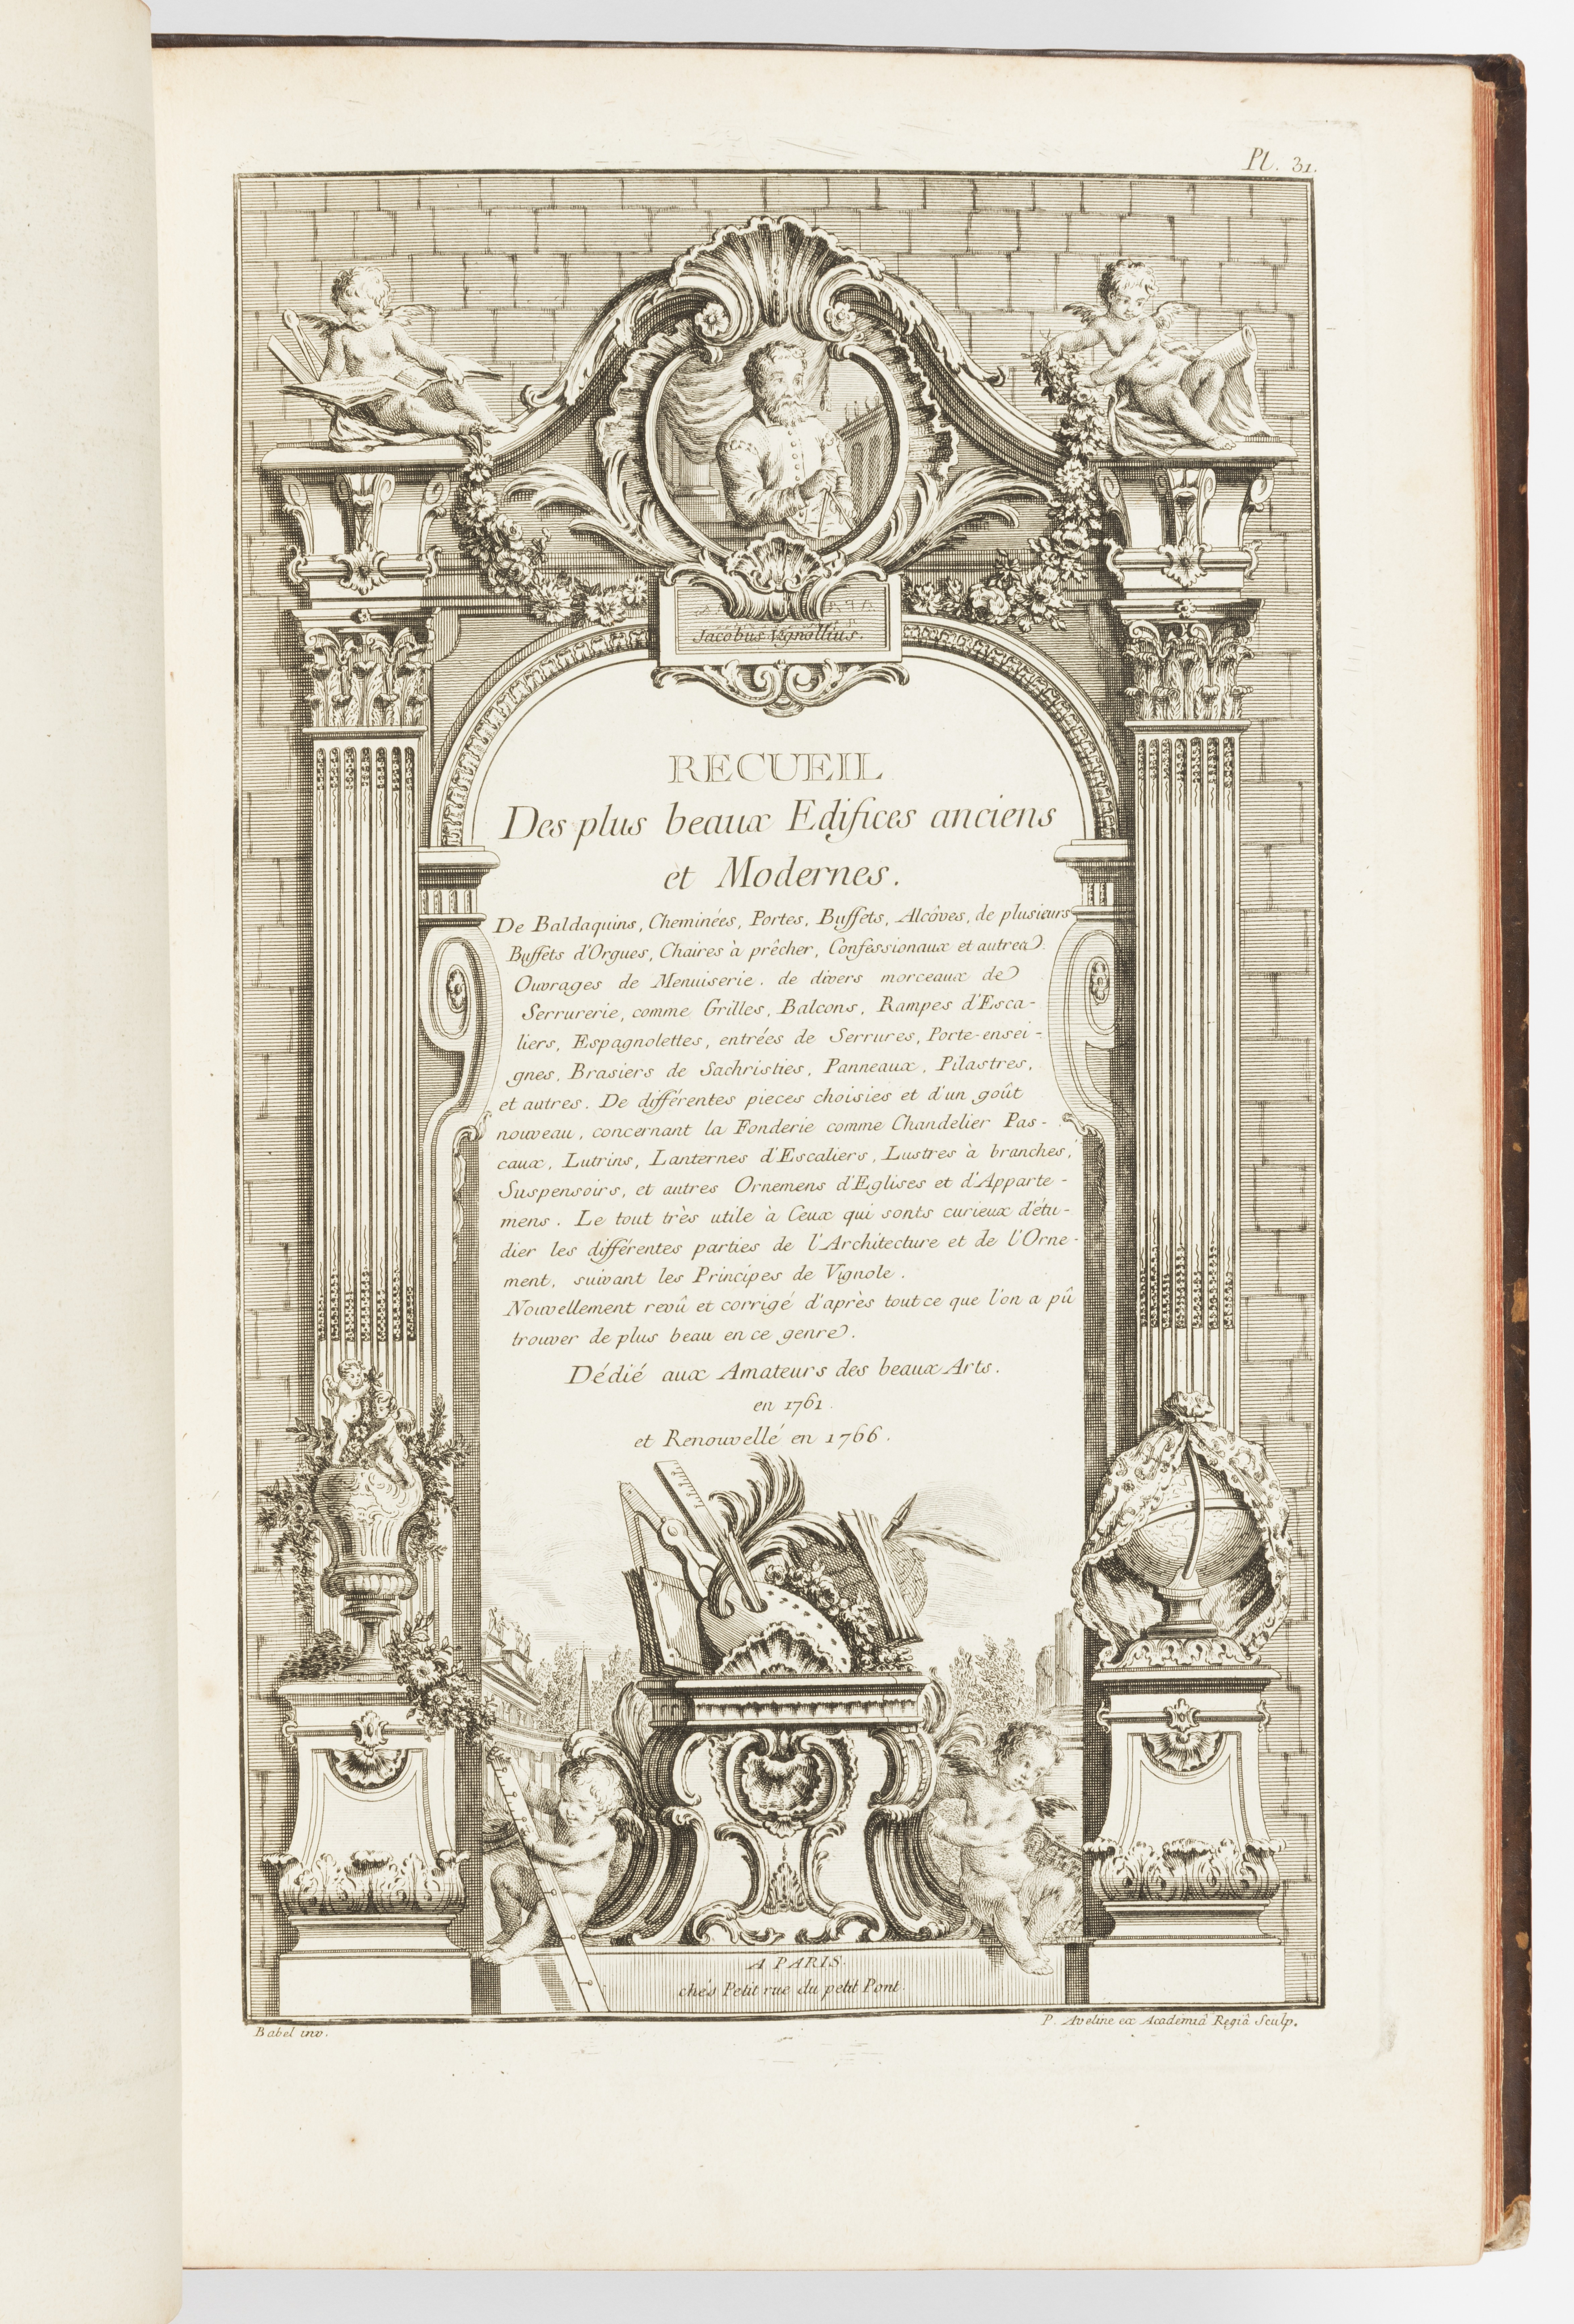 Pl. 31.
Jacobus Vignollius.
RECUEIL
Des plus beaux Edifices anciens
et Modernes.
De Baldaquins, Cheminées, Portes, Buffets, Alcôves, de plusieurs
Buffets d'Orgues, Chaires à prêcher, Confessionaux et autres
Ouvrages de Menuiserie. de divers morceaux de
Serrurerie, comme Grilles, Balcons, Rampes d'Esca-
liers, Espagnolettes, entrées de Serrures, Porte-ensei-
gnes, Brasiers de Sachristies, Panneaux, Pilastres,
et autres. De différentes pieces choisies et d'un goût
nouveau, concernant la Fonderie comme Chandelier Pas-
caux, Lutrins, Lanternes d'Escaliers, Lustres à branches,
Suspensoirs, et autres Ornemens d'Eglises et d'Apparte-
mens. Le tout très utile à Ceux qui sonts curieux d'étu-
dier les différentes parties de l'Architecture et de l'Orne-
ment, suivant les Principes de Vignole.
Nouvellement revû et corrigé d'après tout ce que l'on a pû
trouver de plus beau en ce genre.
Dédié aux Amateurs des beaux Arts.
en 1761.
et Renouvellé en 1766.
A PARIS.
chés Petit rue du petit Pont.
Babel inv.
P. Aveline ex Academiâ Regiâ Sculp.